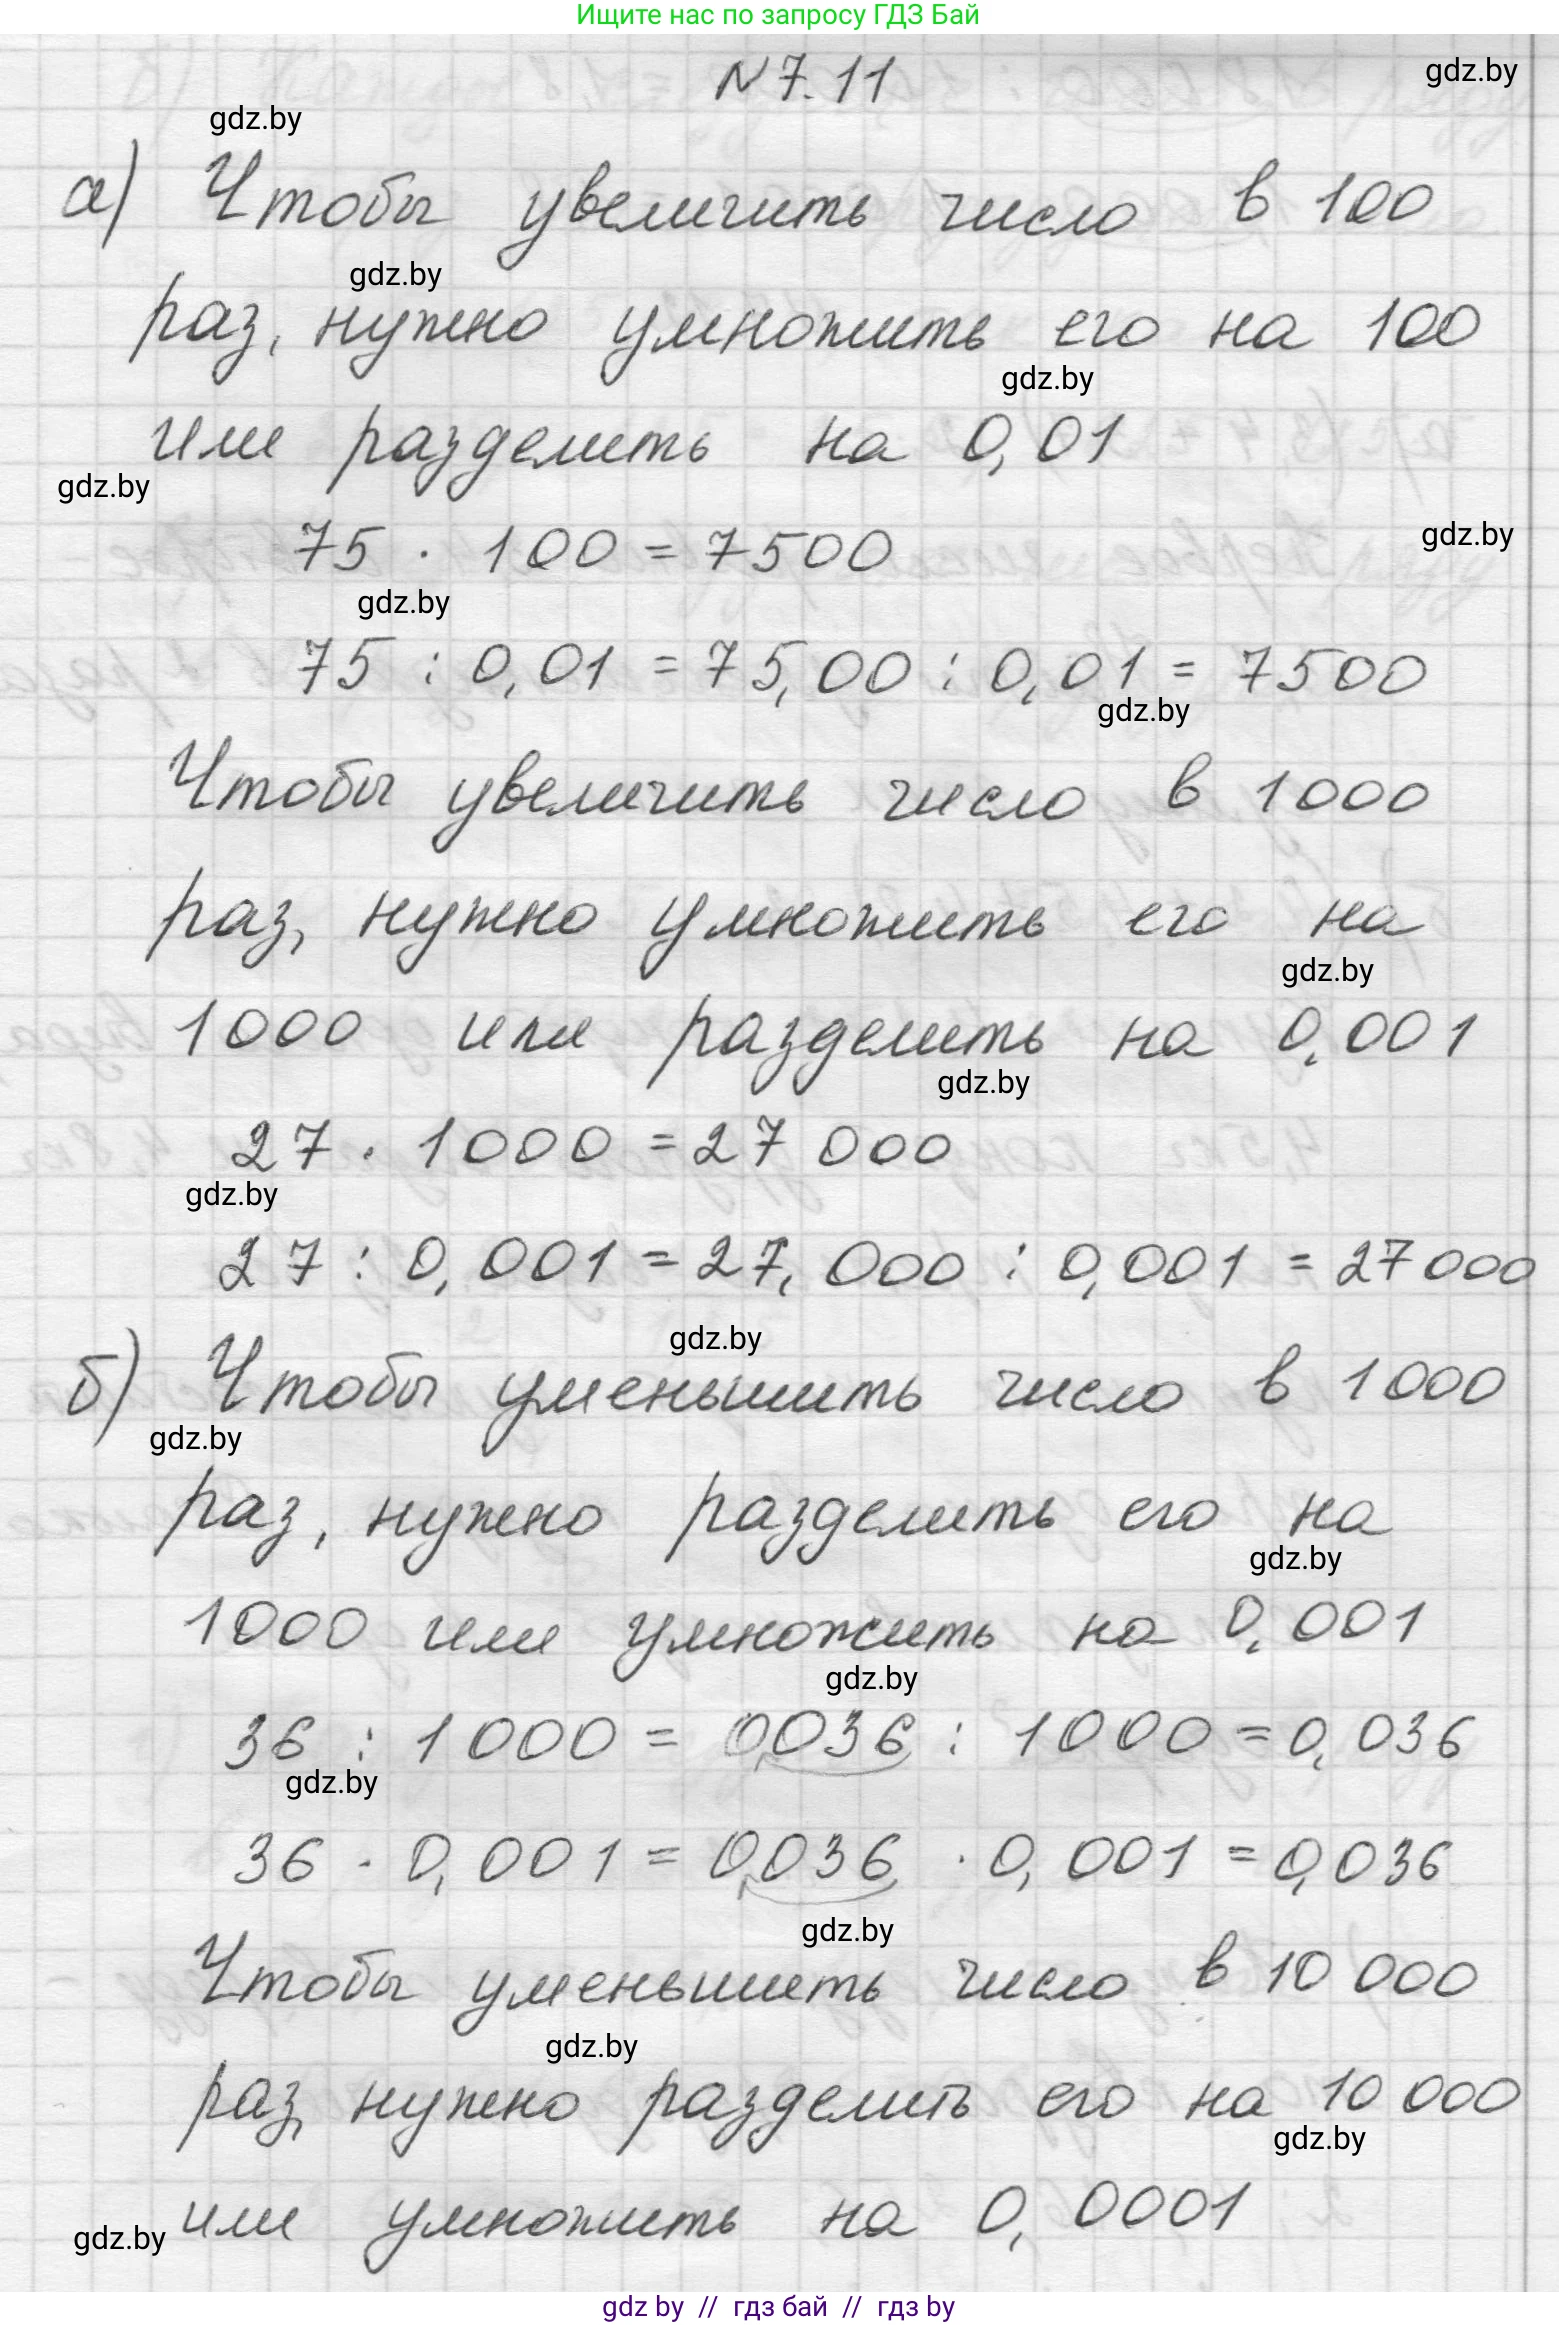 Ищите нас по запросу ГДЗ Бай
N7.11
gdz.by
gdz.by
а) Чтобы увеличить число в 100
gdz.by
раз, нужно умножить его на 100
gdz.by
или разделить на 0,01
gdz.by
gdz.by
75 · 100 = 7500
gdz.by
75 : 0,01 = 75,00 : 0,01 = 7500
gdz.by
Чтобы увеличить число в 1000
раз, нужно умножить его на
gdz.by
1000 или разделить на 0,001
gdz.by
27 · 1000 = 27 000
gdz.by
27 : 0,001 = 27,000 : 0,001 = 27000
gdz.by
б) Чтобы уменьшить число в 1000
gdz.by
раз, нужно разделить его на
gdz.by
1000 или умножить на 0,001
gdz.by
36 : 1000 = 0036 : 1000 = 0,036
gdz.by
36 · 0,001 = 0036 · 0,001 = 0,036
gdz.by
Чтобы уменьшить число в 10 000
gdz.by
раз, нужно разделить его на 10 000
gdz.by
или умножить на 0,0001
gdz.by
gdz by // гдз бай // гдз by